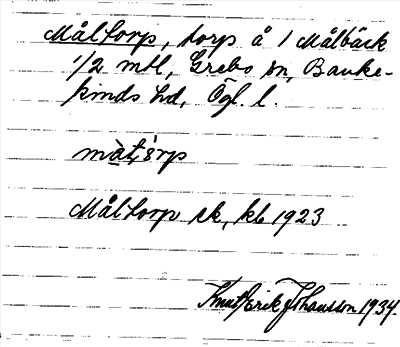 Måltorp, torp å 1 Målbäck
1/2 mtl, Grebo sn, Banke-
kinds hd, Ögl. l.
Måltorp sk, kb 1923
Knut Erik Johansson 1934.